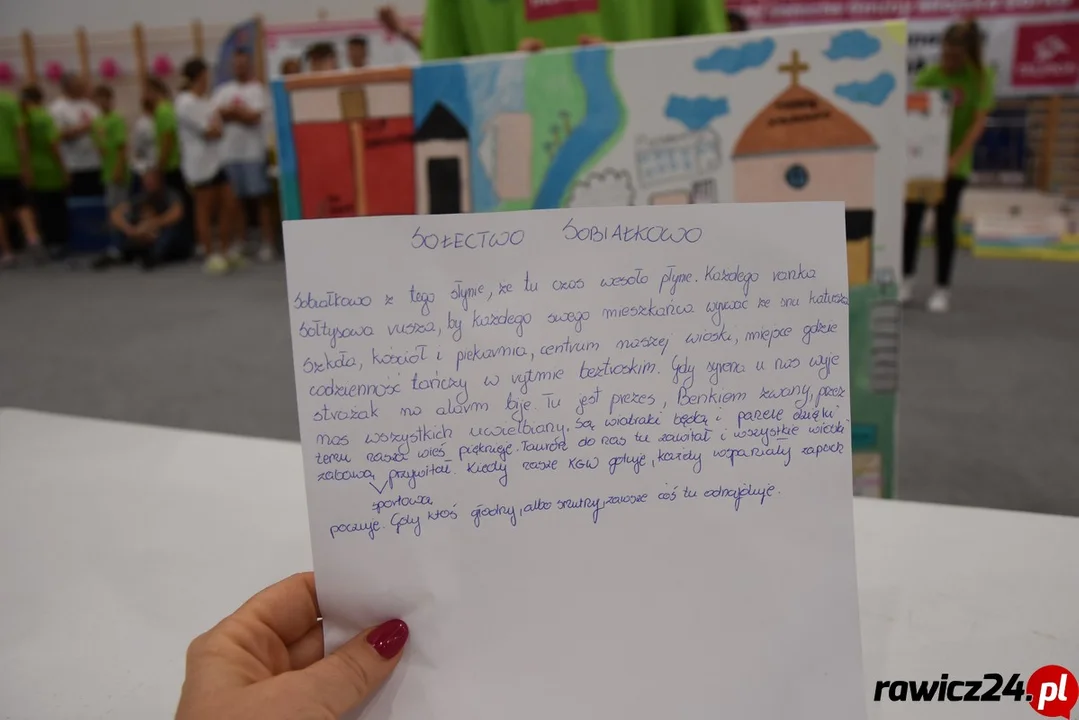 SOŁECTWO SOBIAŁKOWO
Sobiałkowo z tego słynie, że tu czas wesoło płynie. Każdego ranka
Sołtysowa rusza, by każdego swego mieszkańca wyrwać ze snu katusza
Szkoła, kościół i piekarnia, centrum naszej wioski, miejsce gdzie
codzienność tańczy w rytmie beztroskim. Gdy syrena u nas wyje
strażak na alarm bije. Tu jest prezes, Benkiem zwany, przez
nas wszystkich uwielbiany. Są wiatraki będą i panele dzięki
temu nasza wieś pięknieje. Tauron do nas tu zawitał i wszystkie wioski
zabawą przywitał. Kiedy nasze KGW gotuje, każdy wspaniały zapach
sportową
poczuje. Gdy ktoś głodny, albo smutny, zawsze coś tu odnajduje.
rawicz24.pl